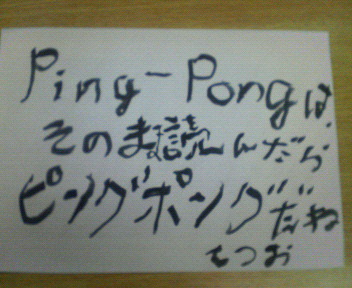 Ping-Pongは
そのまま読んだら
ピングポングだね
もつお